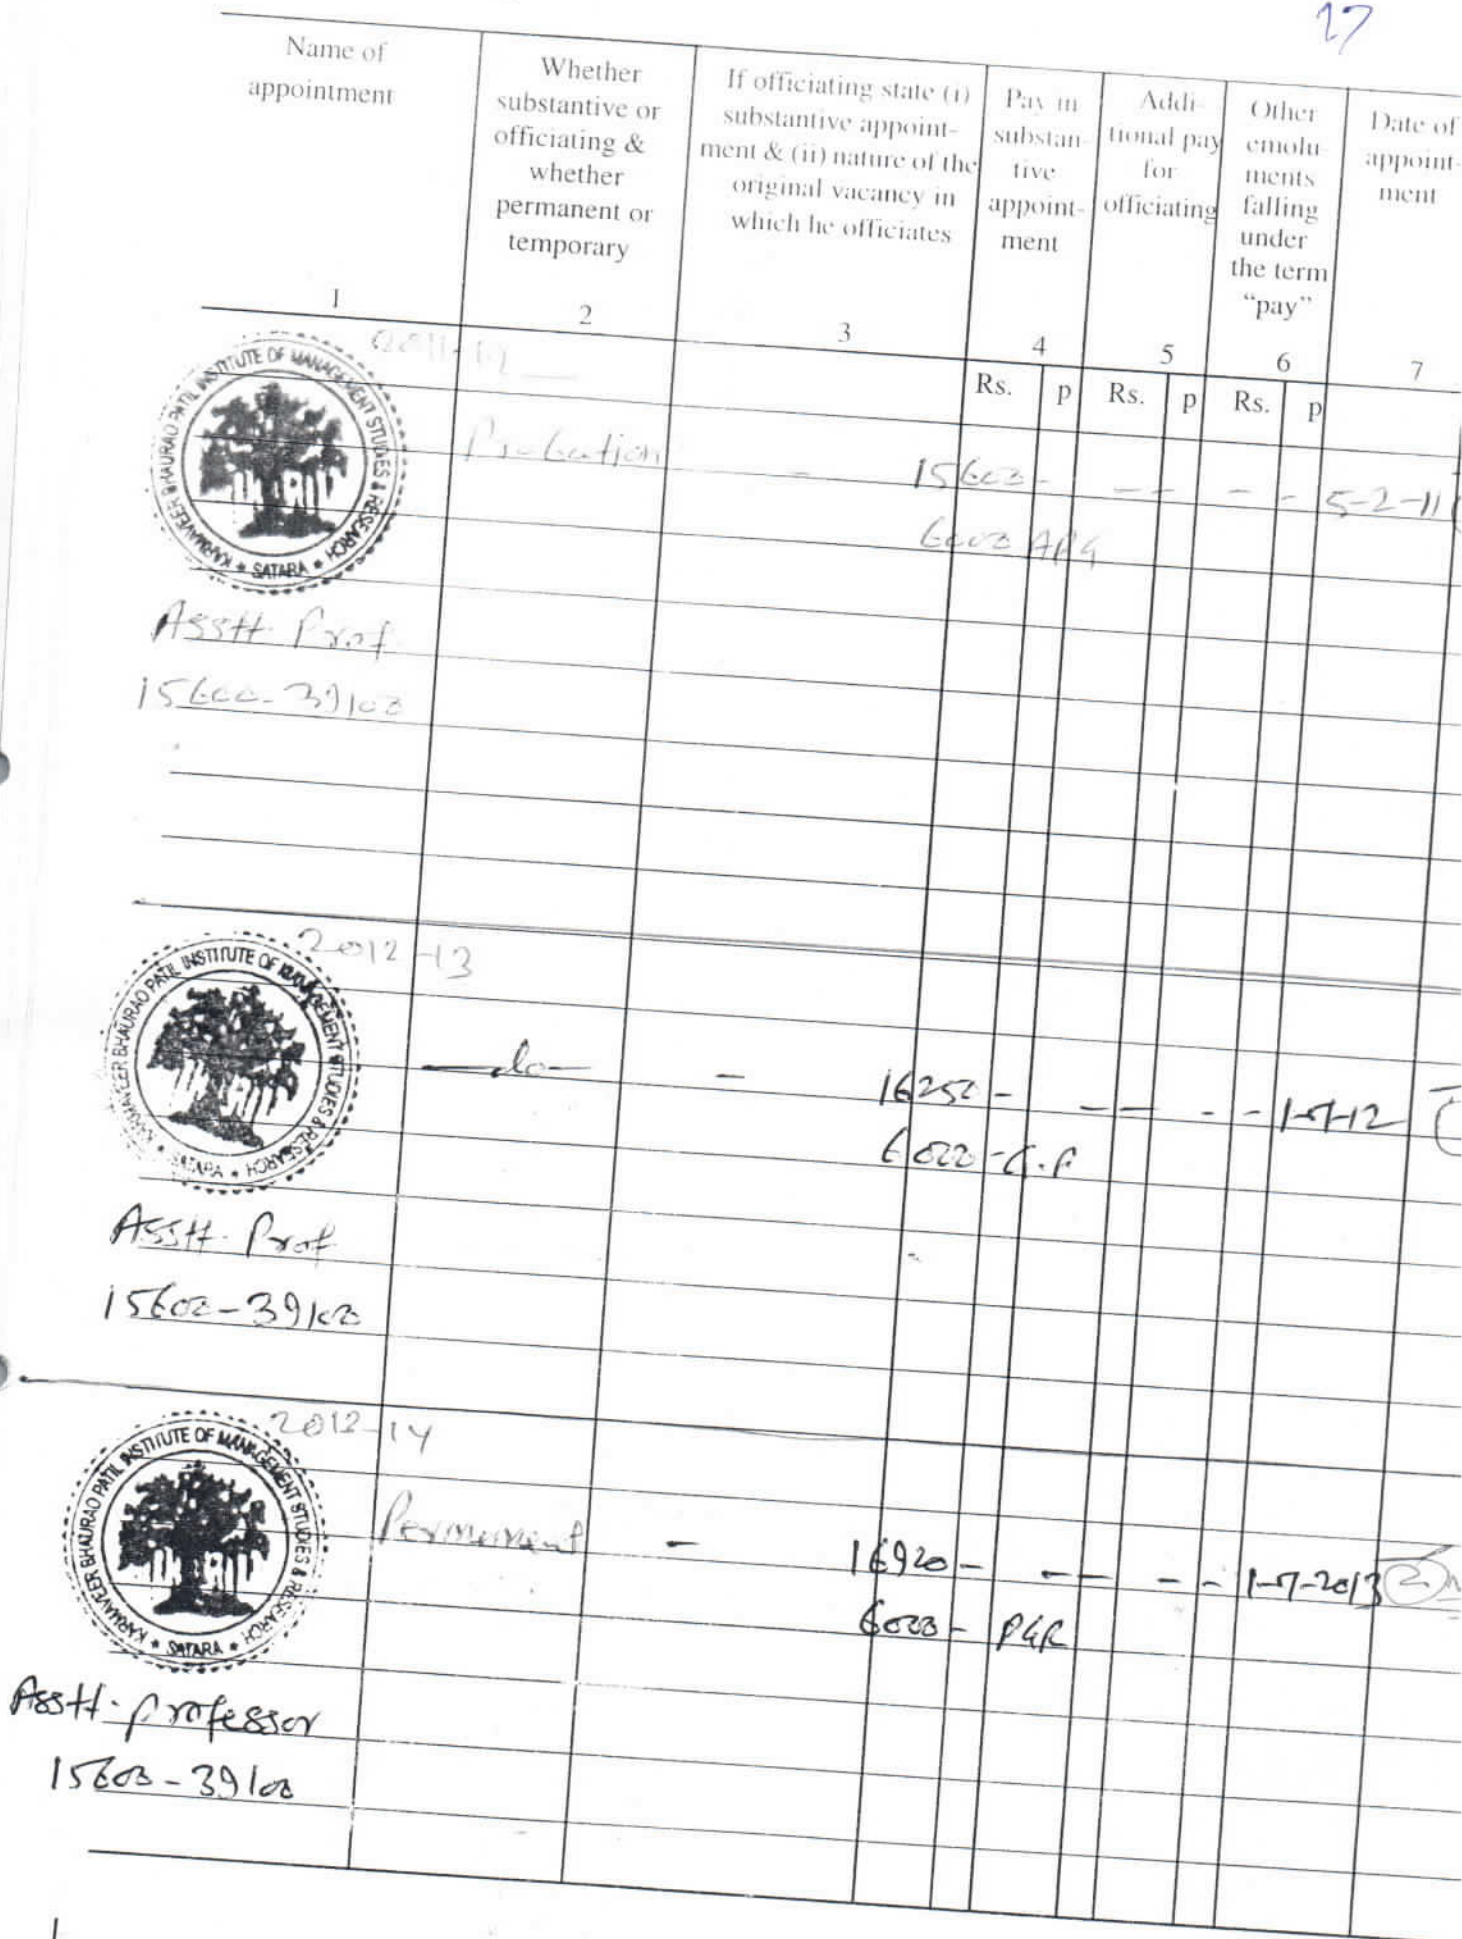 17
Name of appointment
Whether substantive or officiating & whether permanent or temporary
If officiating state (i) substantive appoint- ment & (ii) nature of the original vacancy in which he officiates
Pay in substan- tive appoint- ment
Addi- tional pay for officiating
Other emolu- ments falling under the term “pay”
Date of appoint- ment
1 2 3 4 5 6 7
Rs. p Rs. p Rs. p
KARMAVEER BHAURAO PATIL INSTITUTE OF MANAGEMENT STUDIES & RESEARCH * SATARA *
2011-12
Probation - 15600 - - - - - 5-2-11
6000 AGP
Asstt. Prof
15600-39100
KARMAVEER BHAURAO PATIL INSTITUTE OF MANAGEMENT STUDIES & RESEARCH * SATARA *
2012-13
-do- - 16250 - - - - - 1-7-12
6000 - G.P
Asstt. Prof
15600-39100
KARMAVEER BHAURAO PATIL INSTITUTE OF MANAGEMENT STUDIES & RESEARCH * SATARA *
2012-14
Permanent - 16920 - - - - - 1-7-2013
6000 -
Asstt. professor
15600-39100